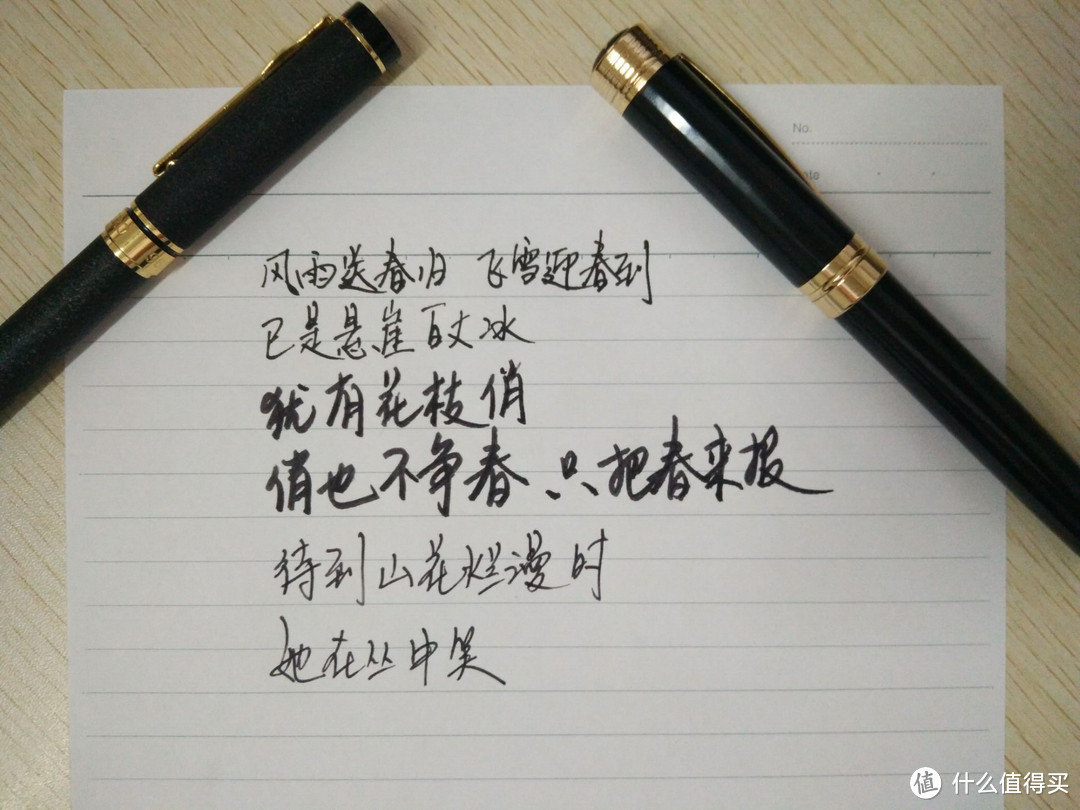 No.
风雨送春归 飞雪迎春到
已是悬崖百丈冰
犹有花枝俏
俏也不争春 只把春来报
待到山花烂漫时
她在丛中笑
值 什么值得买